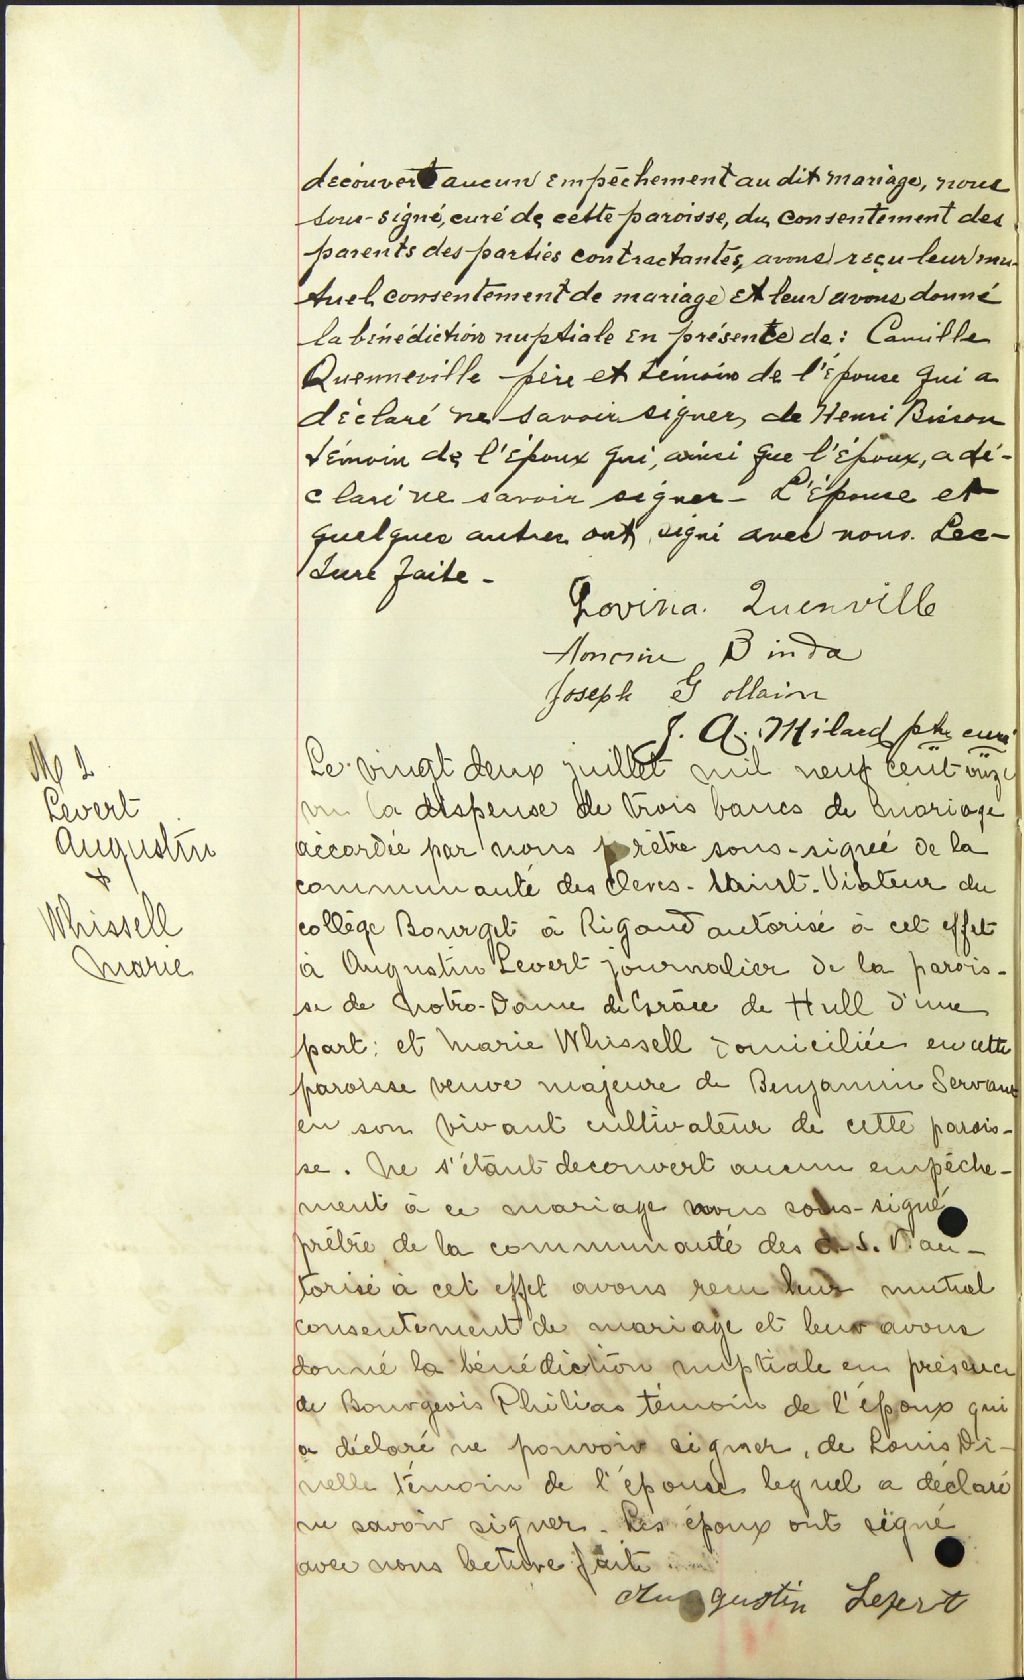 découvert aucun empêchement au dit mariage, nous
sous-signé, curé de cette paroisse, du consentement des
parents des parties contractantes, avons reçu leur mu-
tuel consentement de mariage et leur avons donné
la bénédiction nuptiale en présente de : Camille
Quenneville père et témoin de l'épouse qui a
déclaré ne savoir signer, de Henri Bisson
témoin de l'époux qui, ainsi que l'époux, a dé-
claré ne savoir signer - L'épouse et
quelques autres ont signé avec nous. Lec-
ture faite -
Lovina. Quenville
Binda
Joseph Gollain
J. A. Milard ptre curé
M 2
Levert
Augustin
&
Whissell
Marie
Le vingt deux juillet mil neuf cent onze
vu la dispense de trois bancs de mariage
accordée par nous prêtre sous-signé de la
communauté des clercs-Saint-Viateur du
collège Bourget à Rigaud autorisé à cet effet
à Augustin Levert journalier de la parois-
se de Notre-Dame de Grâce de Hull d'une
part; et Marie Whissell domiciliée en cette
paroisse veuve majeure de Benjamin Servant
en son vivant cultivateur de cette parois-
se. Ne s'étant decouvert aucun empêche-
ment à ce mariage nous sous-signé
prêtre de la communauté des c. S. V. au-
torisé à cet effet avons recu leur mutuel
consentement de mariage et leur avons
donné la bénédiction nuptiale en présence
de Bourgeois Philias témoin de l'époux qui
a déclaré ne pouvoir signer, de Louis Di-
nelle témoin de l'épouse lequel a déclaré
ne savoir signer. Les époux ont signé
avec nous lecture fait
Augustin Levert